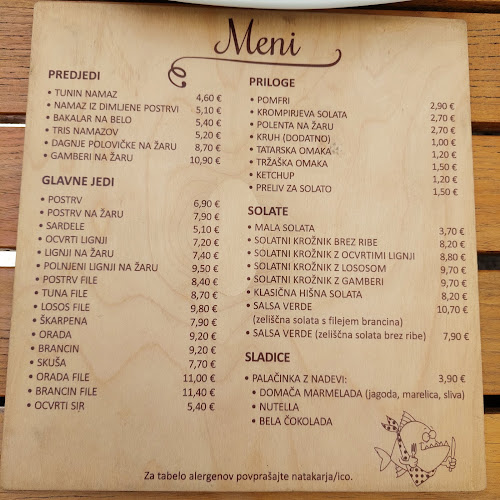 Meni
PREDJEDI
• TUNIN NAMAZ 4,60 €
• NAMAZ IZ DIMLJENE POSTRVI 5,10 €
• BAKALAR NA BELO 5,40 €
• TRIS NAMAZOV 5,20 €
• DAGNJE POLOVIČKE NA ŽARU 8,70 €
• GAMBERI NA ŽARU 10,90 €
GLAVNE JEDI
• POSTRV 6,90 €
• POSTRV NA ŽARU 7,90 €
• SARDELE 5,10 €
• OCVRTI LIGNJI 7,20 €
• LIGNJI NA ŽARU 7,40 €
• POLNJENI LIGNJI NA ŽARU 9,50 €
• POSTRV FILE 8,40 €
• TUNA FILE 8,70 €
• LOSOS FILE 9,80 €
• ŠKARPENA 7,90 €
• ORADA 9,20 €
• BRANCIN 9,20 €
• SKUŠA 7,70 €
• ORADA FILE 11,00 €
• BRANCIN FILE 11,40 €
• OCVRTI SIR 5,40 €
PRILOGE
• POMFRI 2,90 €
• KROMPIRJEVA SOLATA 2,70 €
• POLENTA NA ŽARU 2,70 €
• KRUH (DODATNO) 1,00 €
• TATARSKA OMAKA 1,20 €
• TRŽAŠKA OMAKA 1,50 €
• KETCHUP 1,20 €
• PRELIV ZA SOLATO 1,50 €
SOLATE
• MALA SOLATA 3,70 €
• SOLATNI KROŽNIK BREZ RIBE 8,20 €
• SOLATNI KROŽNIK Z OCVRTIMI LIGNJI 8,80 €
• SOLATNI KROŽNIK Z LOSOSOM 9,70 €
• SOLATNI KROŽNIK Z GAMBERI 9,70 €
• KLASIČNA HIŠNA SOLATA 8,20 €
• SALSA VERDE 10,70 €
(zeliščna solata s filejem brancina)
• SALSA VERDE (zeliščna solata brez ribe) 7,90 €
SLADICE
• PALAČINKA Z NADEVI: 3,90 €
• DOMAČA MARMELADA (jagoda, marelica, sliva)
• NUTELLA
• BELA ČOKOLADA
Za tabelo alergenov povprašajte natakarja/ico.